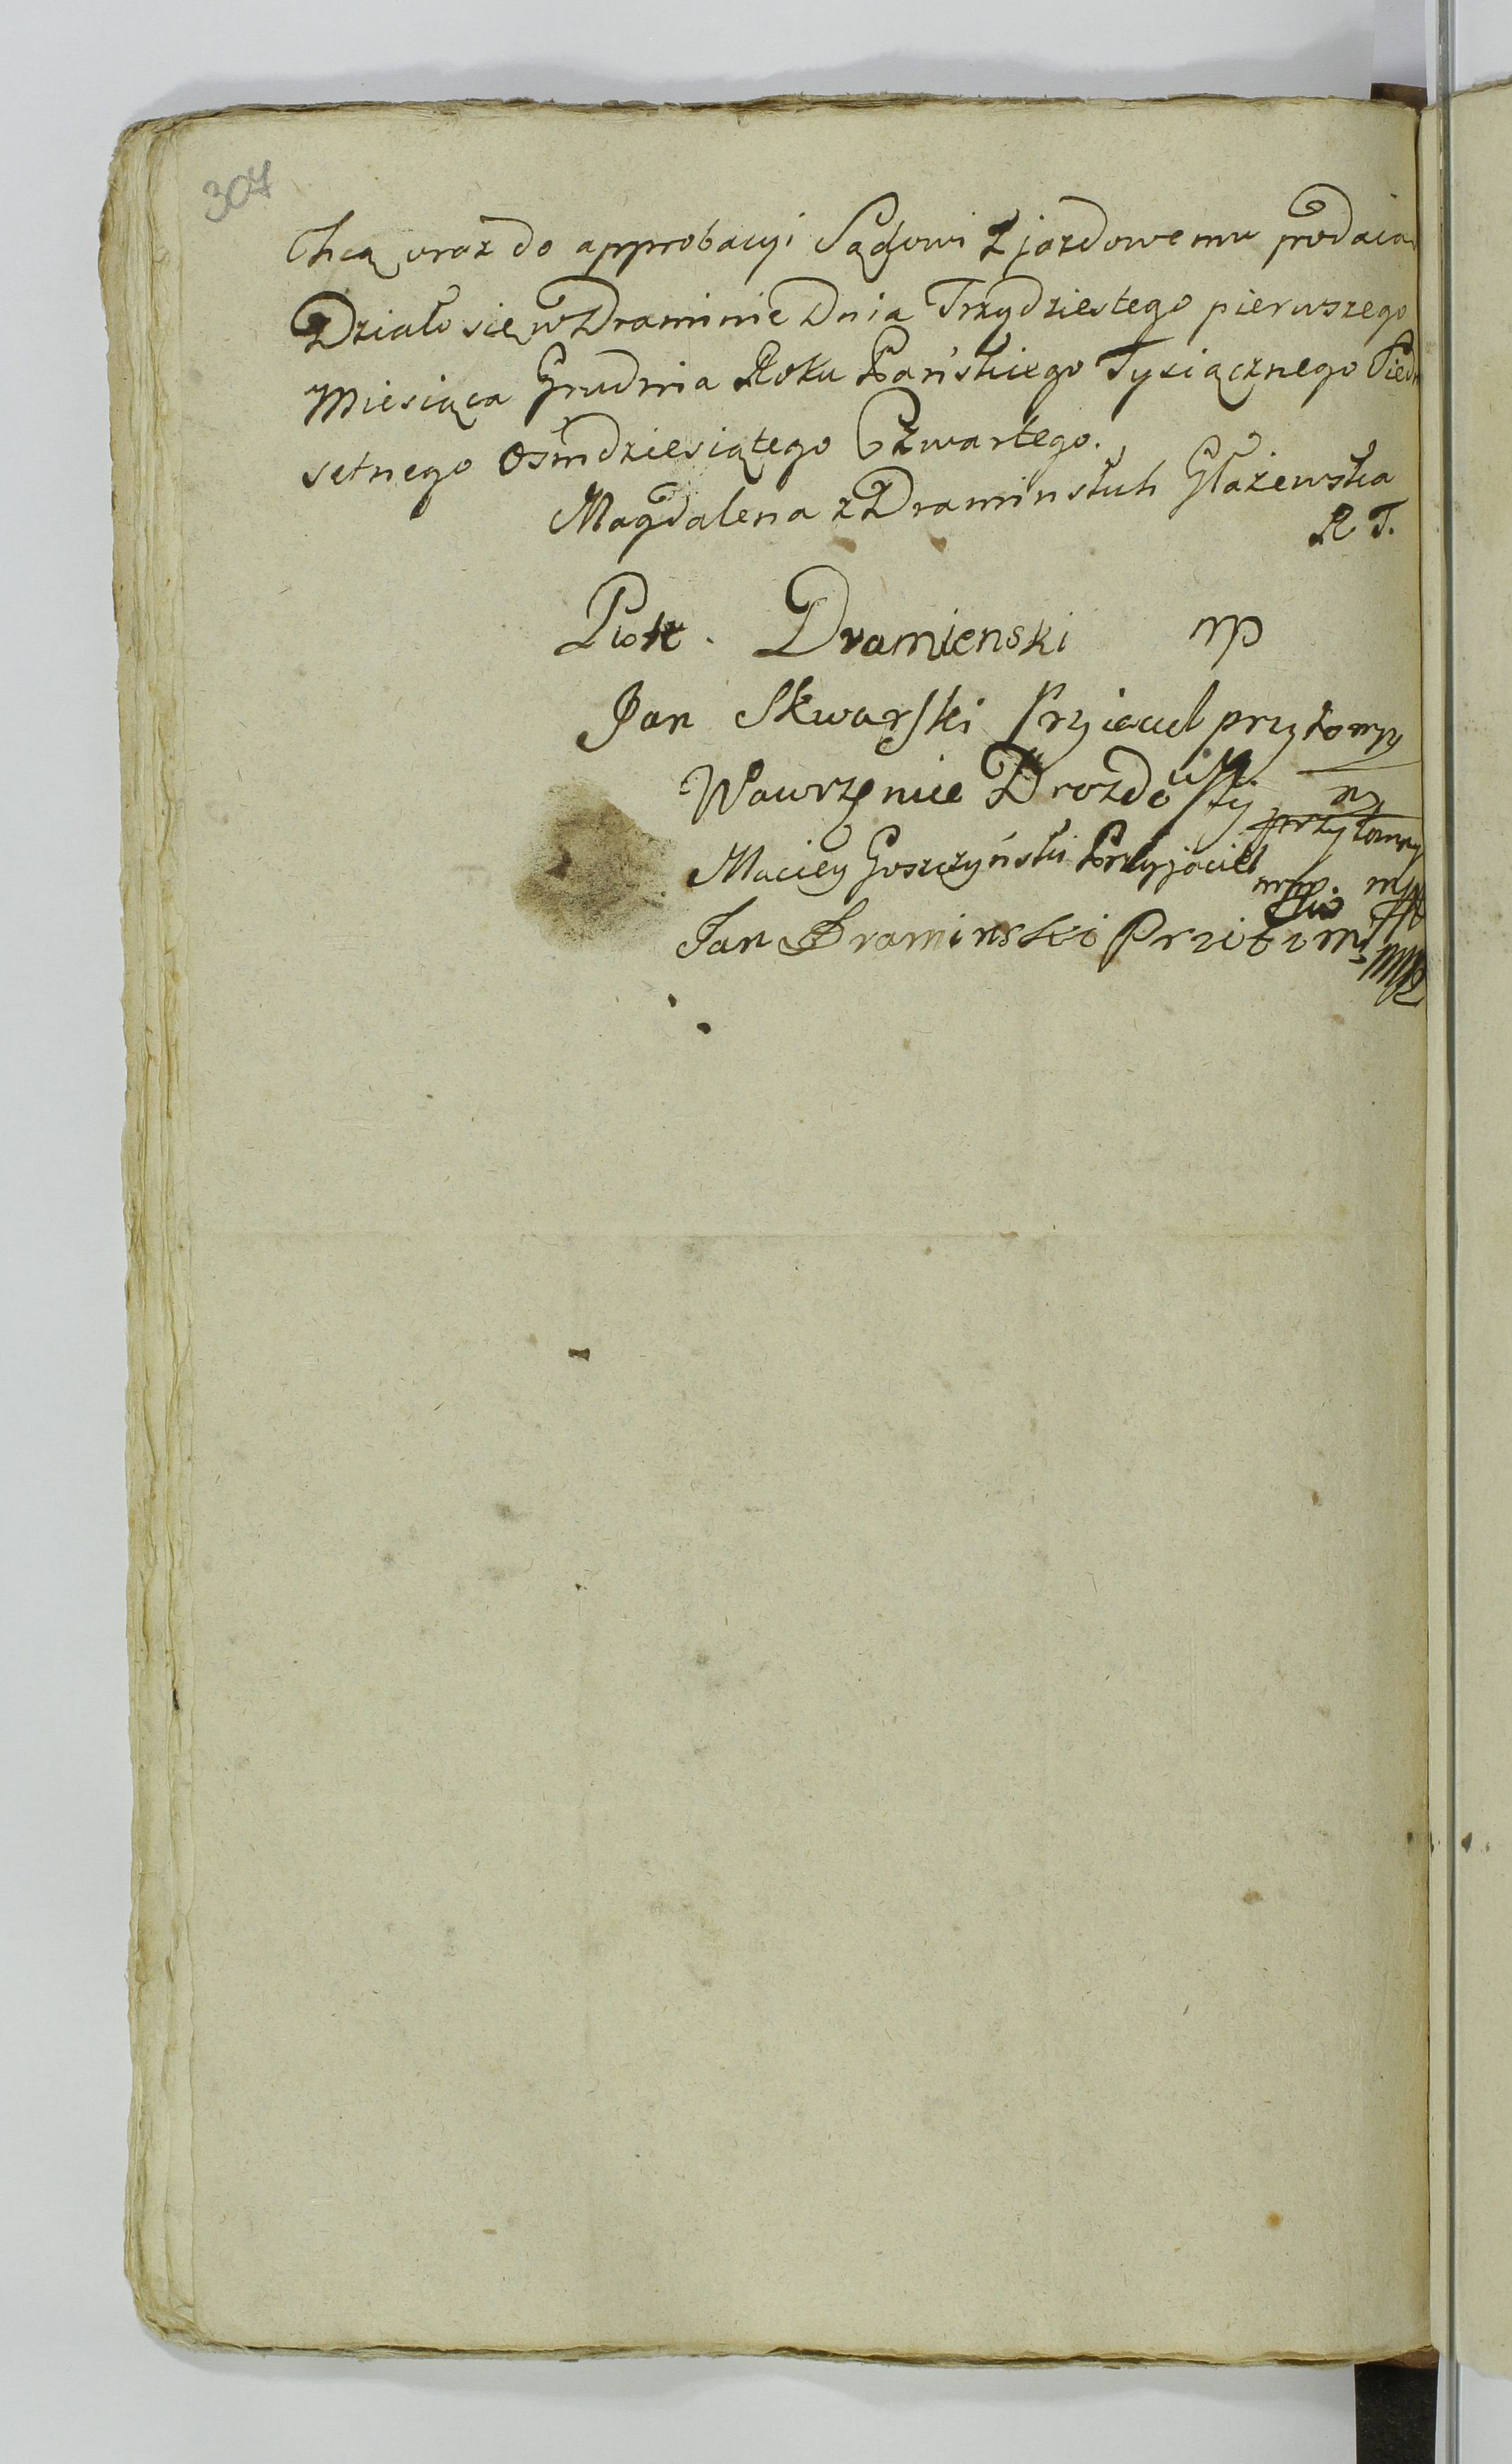 307
Chcą oraz do approbacyi Sądowi Zjazdowemu podaią
Działo się w Draminie Dnia Trzydziestego pierwszego
Miesiąca Grudnia Roku Pańskiego Tysiącznego Siedm
setnego Osmdziesiątego Czwartego.
Magdalena z Draminskich Głażewska
R T.
Piotr Dramienski mp
Jan Skwarski Przyiaciel przytomny
Wawrzeniec Drozdowski
Maciey Goszczyński Przyjaciel przytomny mp
Jan Draminski Przitomny